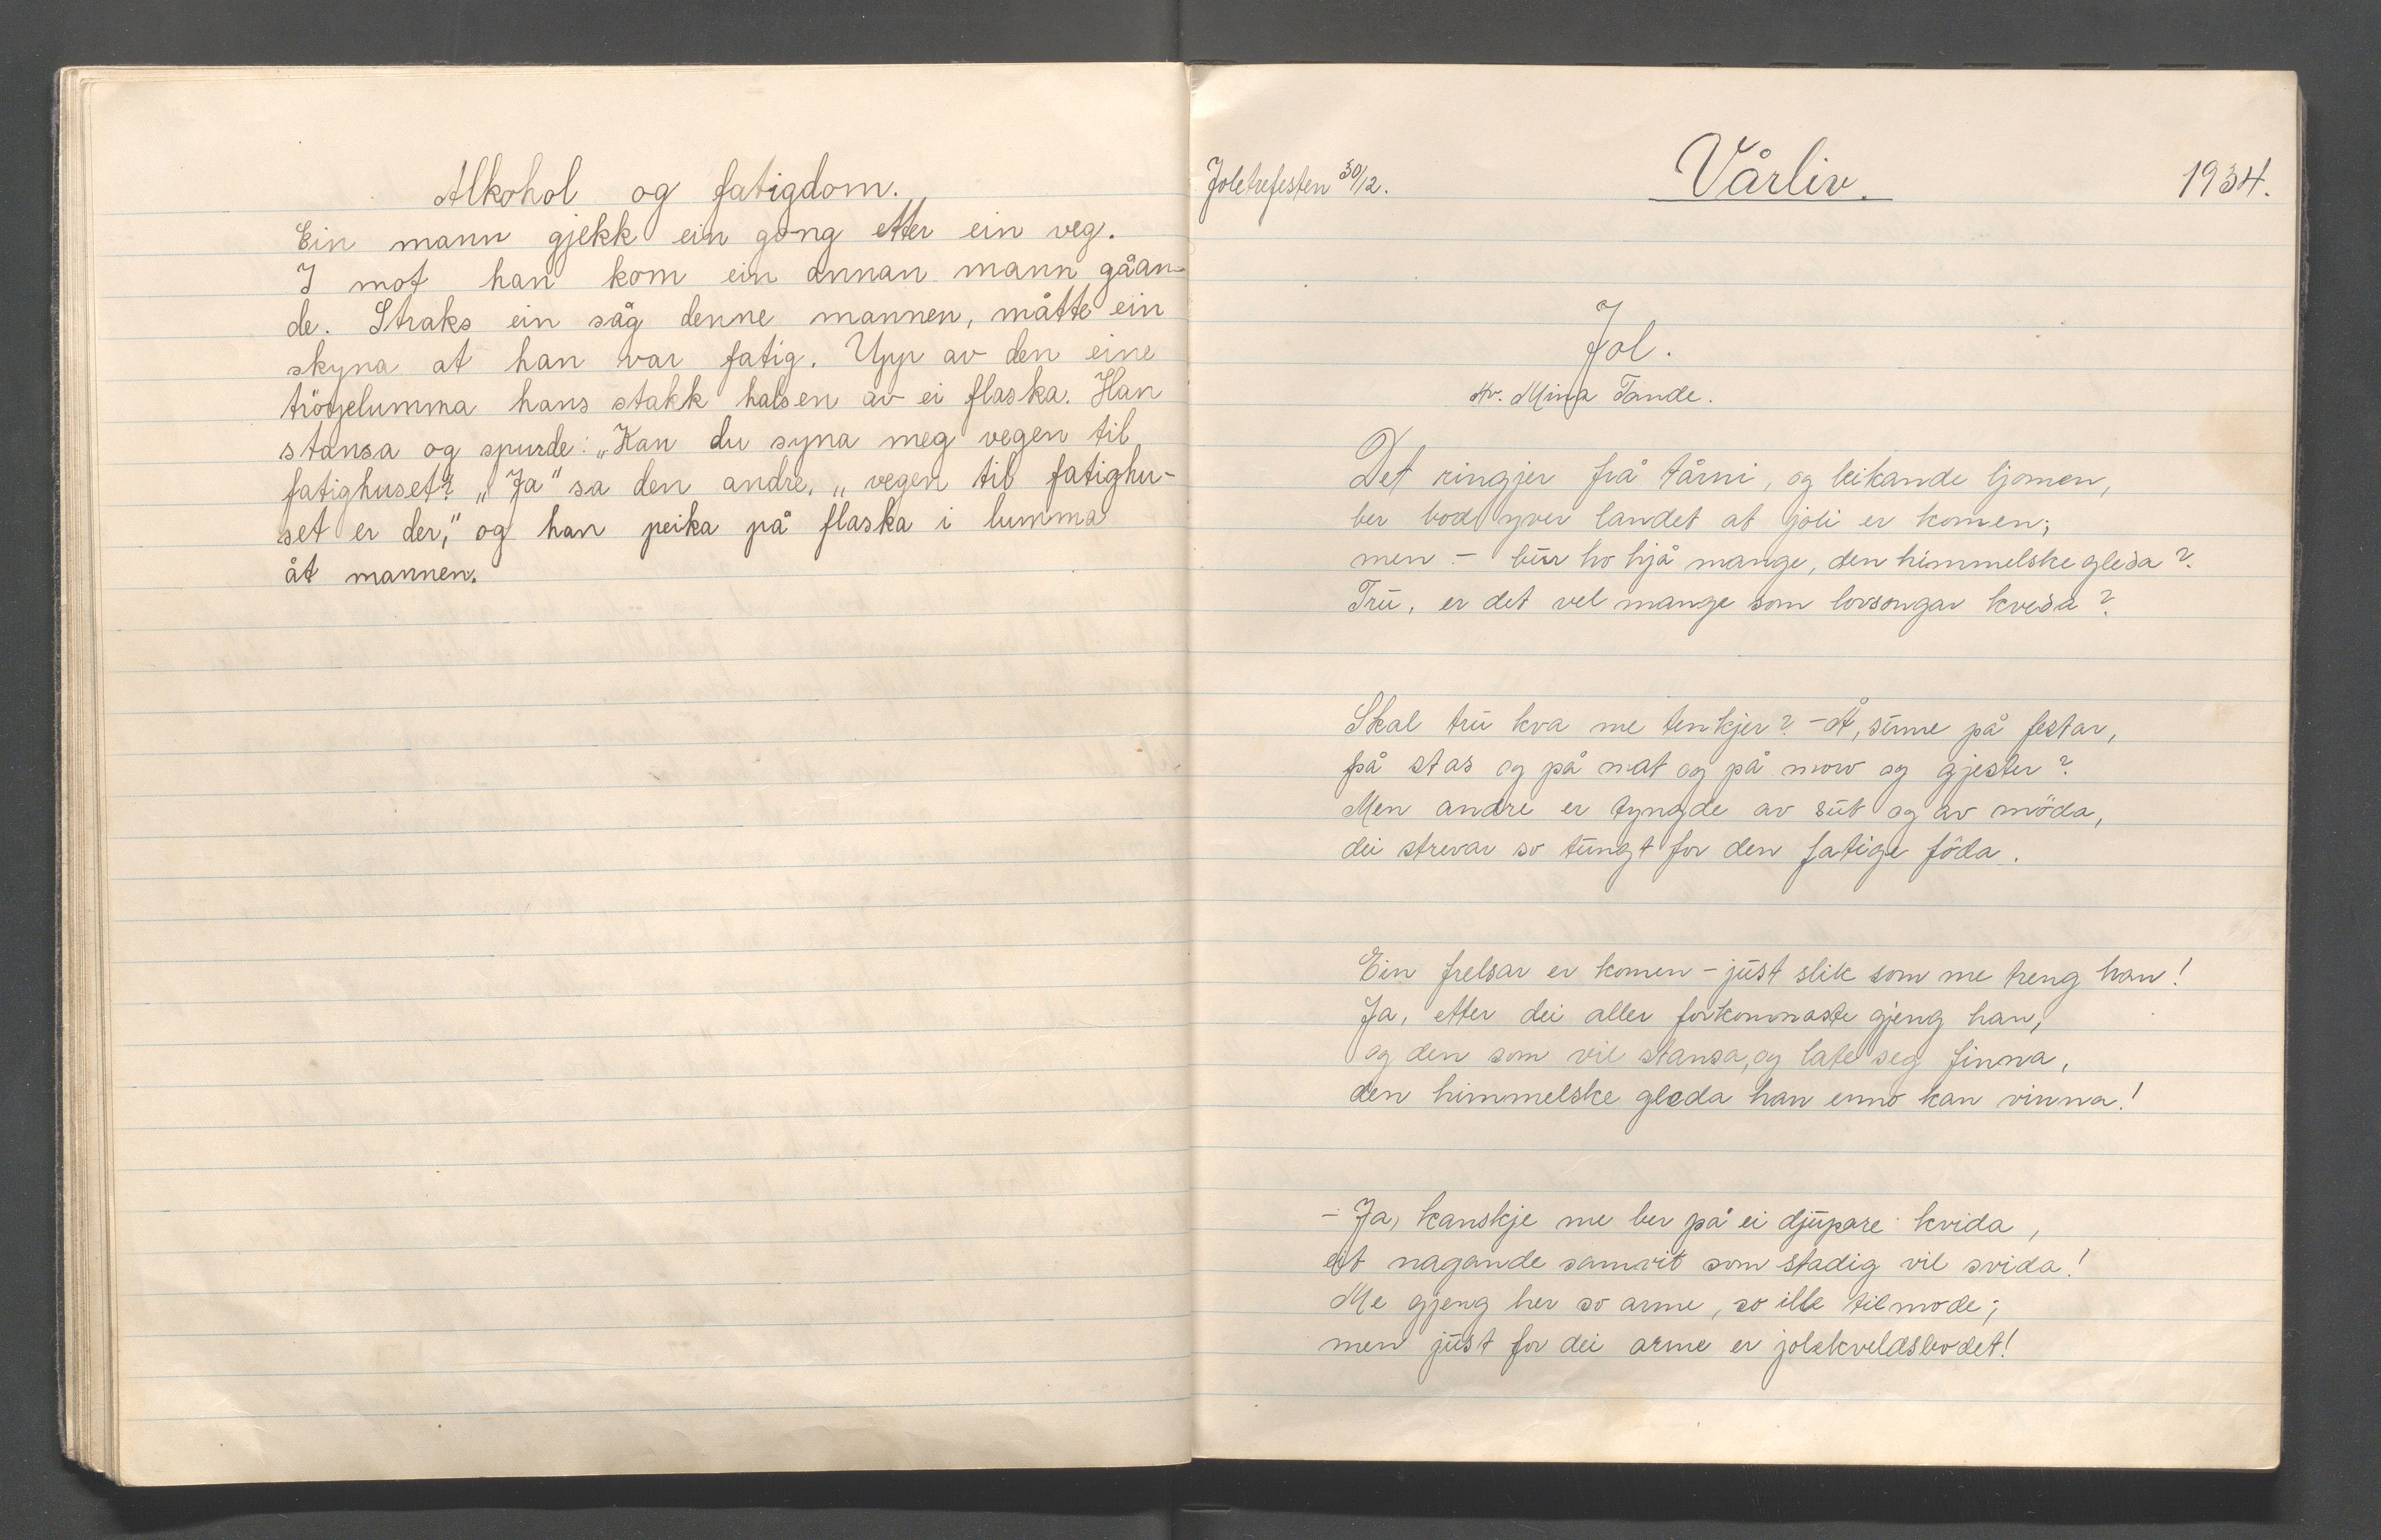 Alkohol og fatigdom.
Ein mann gjekk ein gong etter ein veg.
I mot han kom ein annan mann gåan-
de. Straks ein såg denne mannen, måtte ein
skyna at han var fatig. Upp av den eine
tröyelumma hans stakk halsen av ei flaska. Han
stansa og spurde: „Kan du syna meg vegen til
fatighuset? „Ja" sa den andre, „vegen til fatighu-
set er der," og han peika på flaska i lumma
åt mannen.
Joletrefesten 30/12. Vårliv. 1934.
Jol.
Av. Mina Tande.
Det ringjer frå tårni, og leikande ljomen,
ber bod yver landet at joli er komen;
men - bur ho hjå mange, den himmelske gleda?
Tru, er det vel mange som lovsongar kveda?
Skal tru kva me tenkjer? - Å, sume på festar,
på stas og på mat og på moro og gjester?
Men andre er tyngde av sut og av möda,
dei strevar so tungt for den fatige föda.
Ein frelsar er komen - just slik som me treng han!
Ja, etter dei aller forkomnaste gjeng han,
og den som vil stansa, og late seg finna,
den himmelske gleda han enno kan vinna!
- Ja, kanskje me ber på ei djupare kvida,
eit nagande samvit som stadig vil svida!
Me gjeng her so arme, so ille tilmode;
men just for dei arme er jolekveldsbodet!